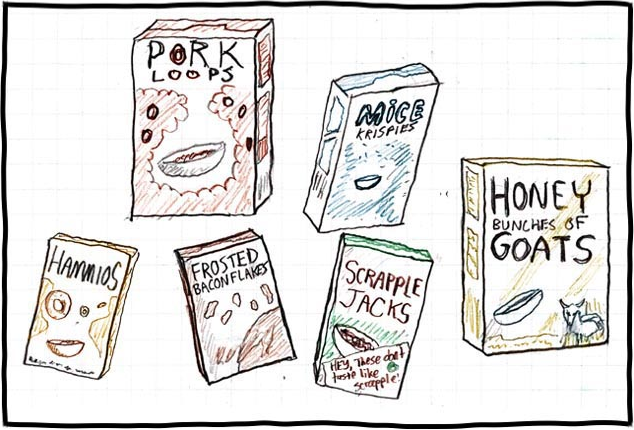 PORK
LOOPS
MICE
KRISPIES
HONEY
BUNCHES OF
GOATS
HAMMIOS
FROSTED
BACON FLAKES
SCRAPPLE
JACKS
HEY, These don't
taste like
scrapple!